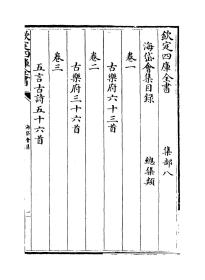 欽定四庫全書
集部八
海岱會集目録
總集類
卷一
古樂府六十三首
卷二
古樂府三十六首
卷三
五言古詩五十六首
欽定四庫全書
海岱會集
一